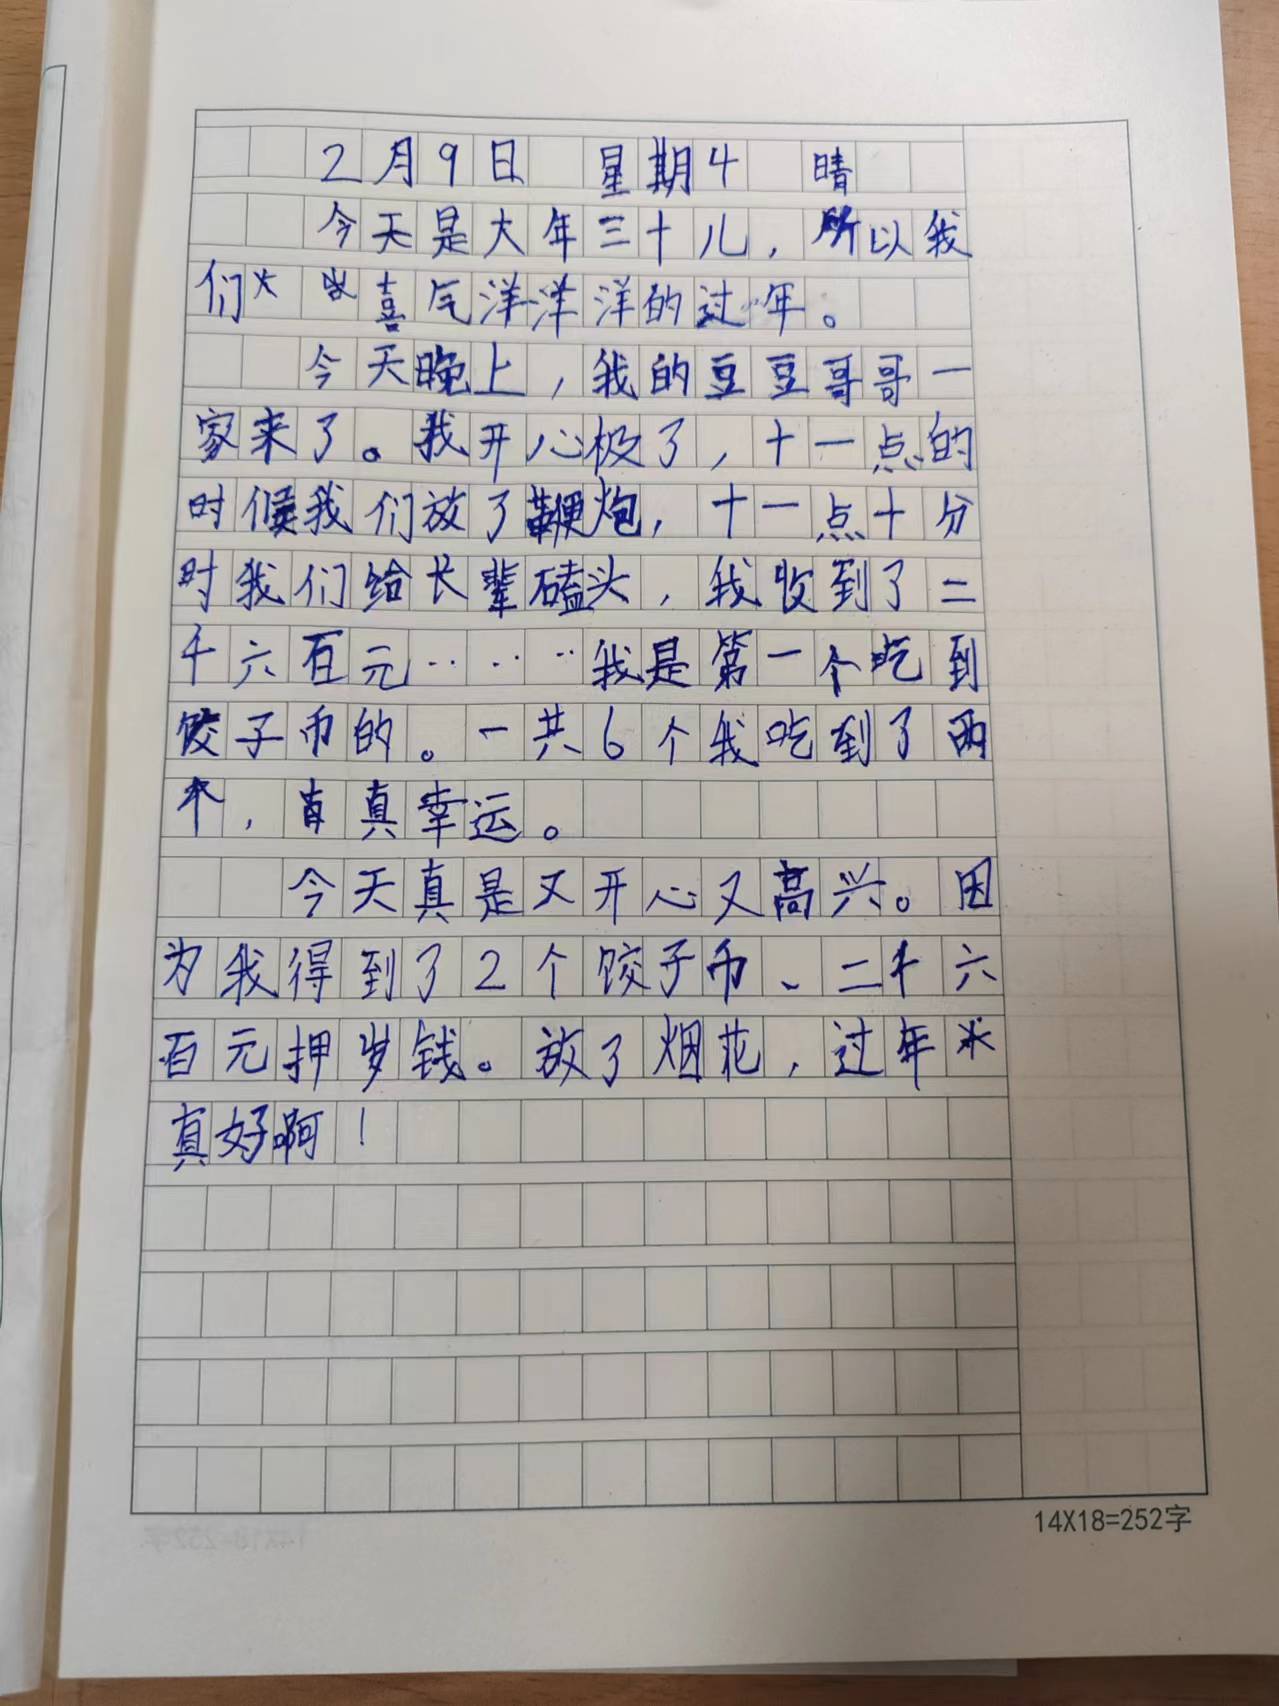 2月9日 星期4 晴
今天是大年三十儿，所以我
们大 喜气洋洋洋的过年。
今天晚上，我的豆豆哥哥一
家来了。我开心极了，十一点的
时候我们放了鞭炮，十一点十分
时我们给长辈磕头，我收到了二
千六百元……我是第一个吃到
饺子币的。一共6个我吃到了两
个，真幸运。
今天真是又开心又高兴。因
为我得到了2个饺子币、二千六
百元押岁钱。放了烟花，过年
真好啊！
14X18=252字